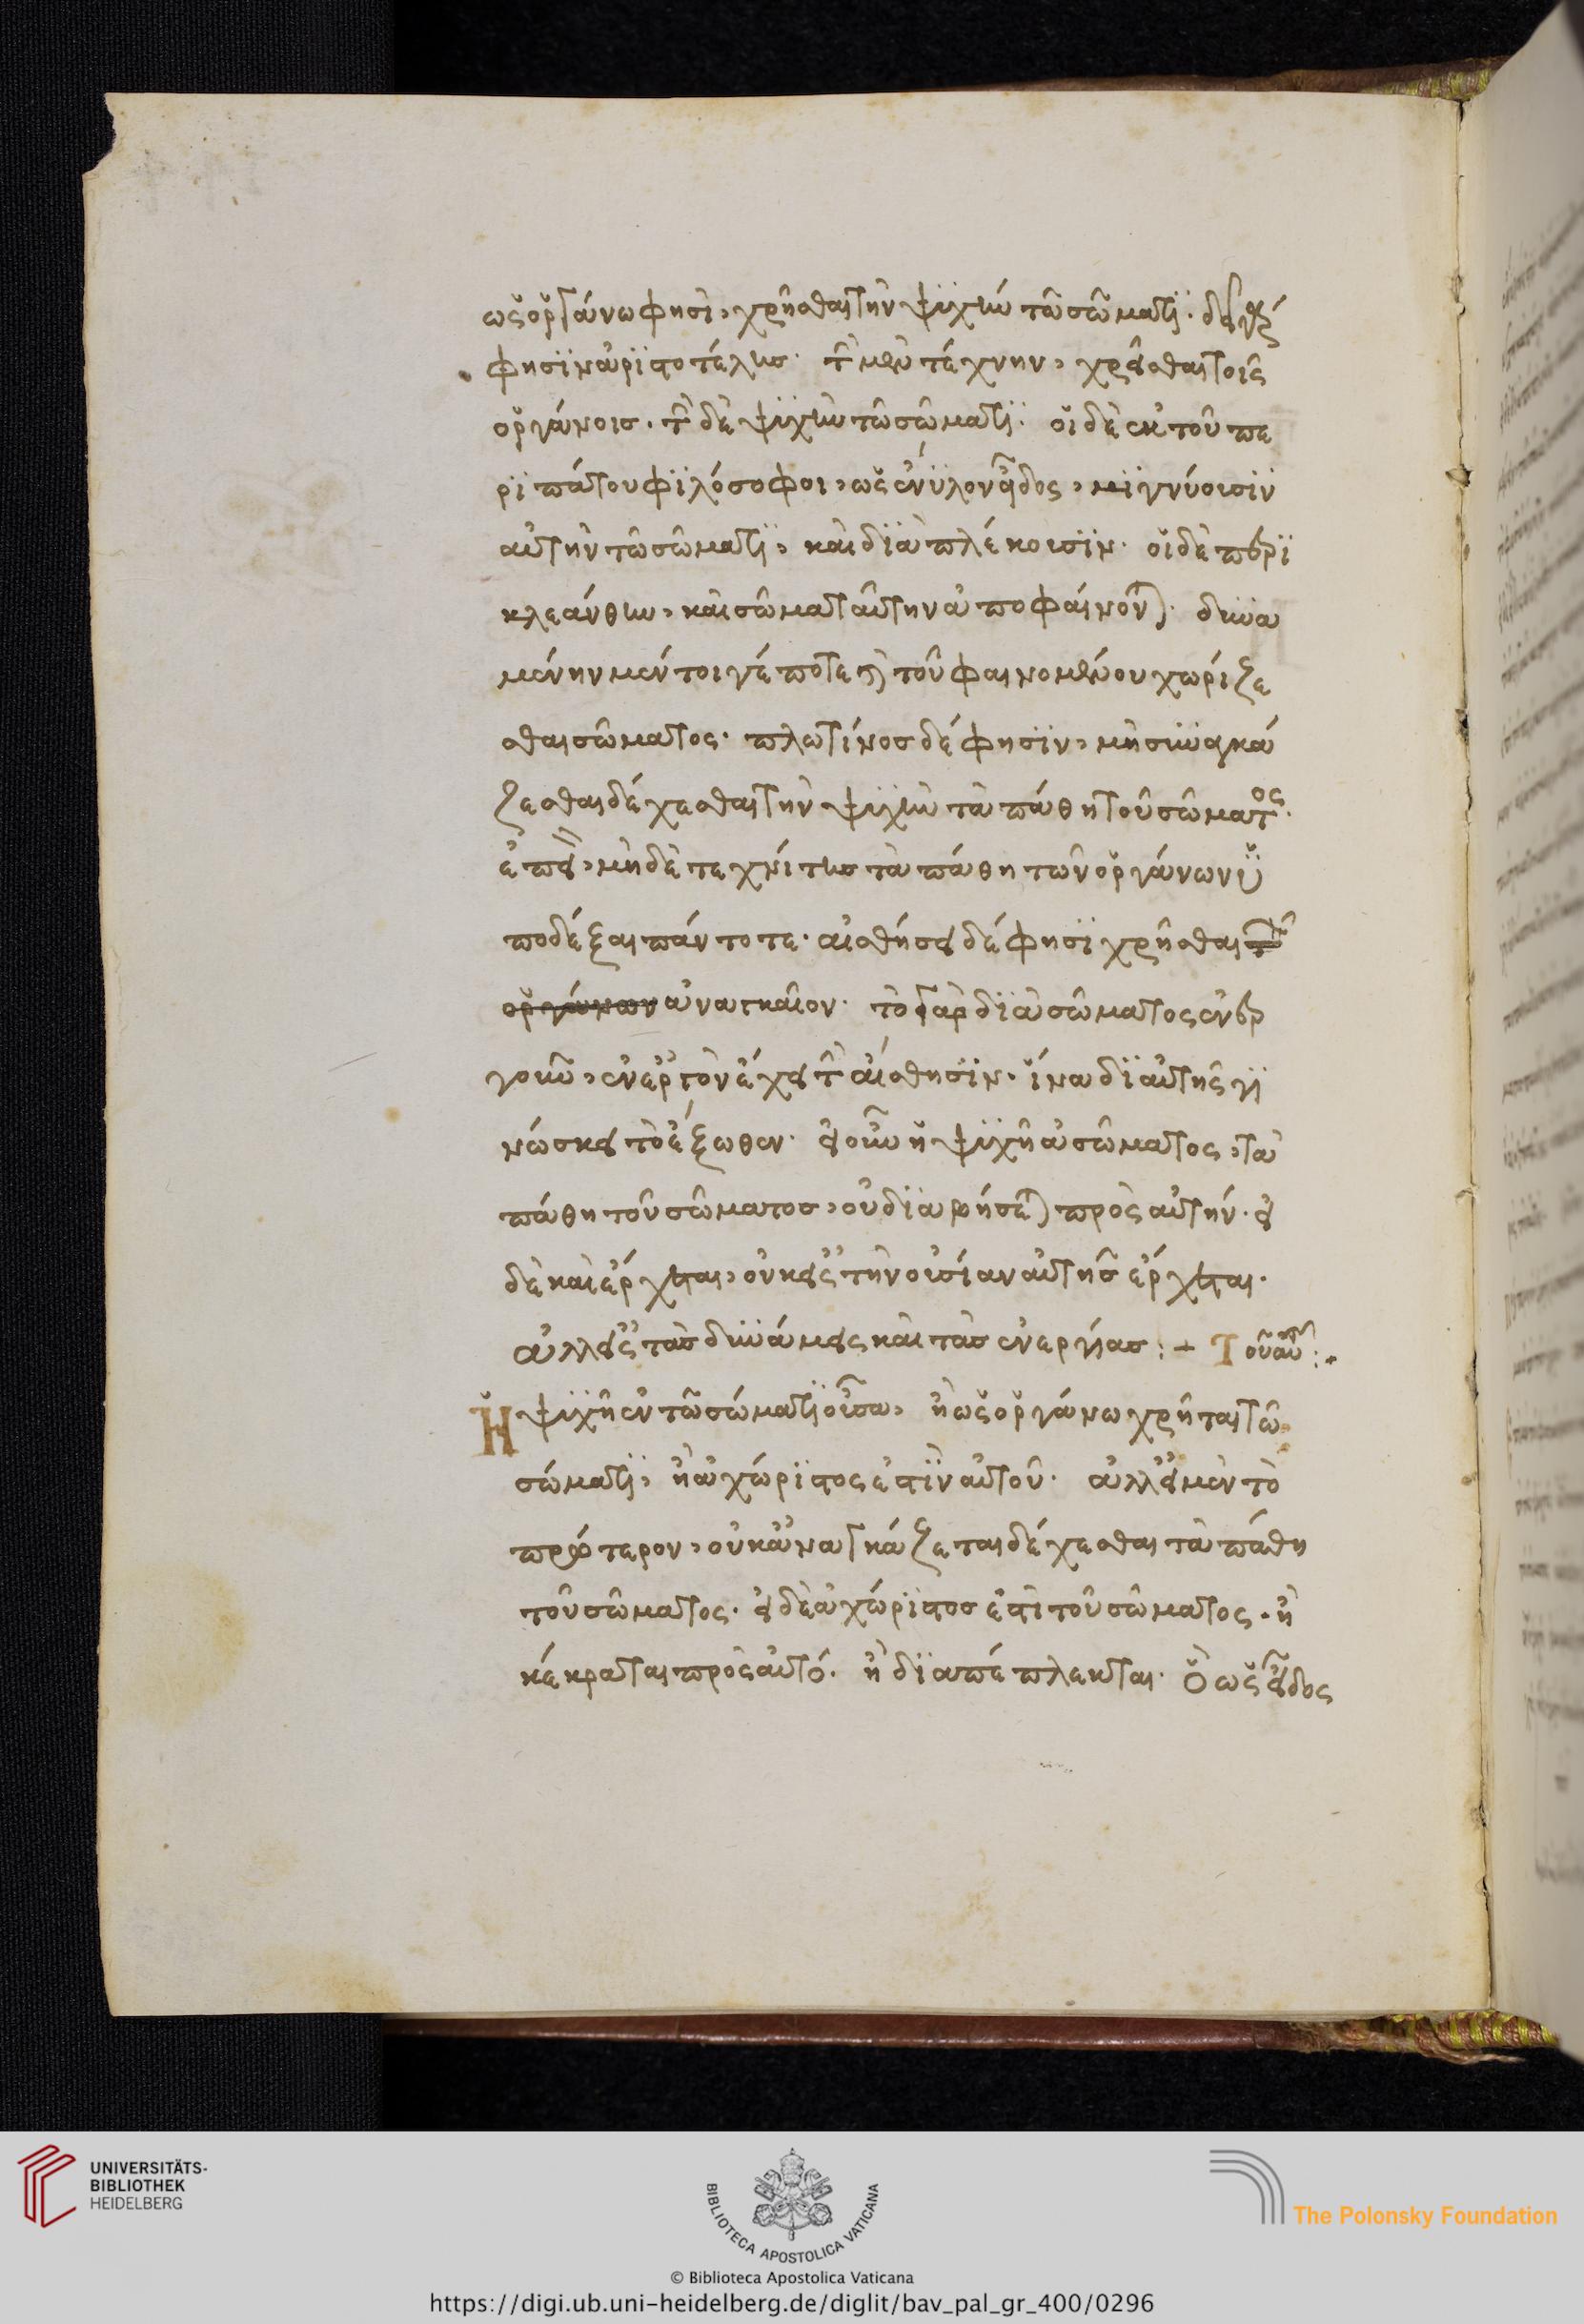 ὡς ὀργάνω φησὶ, χρῆσθαι τὴν ψϋχὴν τῶ σώματϊ. δεῖ γὰρ
φησὶν ἀρϊστοτέλησ. τὴν μὲν τέχνην, χρῆσθαι τοῖς
ὀργάνοισ. τὴν δὲ ψϋχὴν τῶ σώματϊ. οἱ δὲ ἐκ τοῦ πε
ρϊπάτου φϊλόσοφοι, ὡς ἔνυλον εἶδος, μϊγνύουσϊν
αὐτὴν τῶ σώματϊ, καὶ δϊαπλέκουσϊν. οἱ δὲ περϊ
κλεάνθην, καὶ σῶμα ταύτην ἀποφαίνονται. δυνα
μένην μέντοι γέ ποτε καὶ τοῦ φαινομένου χωρίζε
σθαι σώματος. πλωτίνοσ δέ φησϊν, μὴ συναγκά
ζεσθαι δέχεσθαι τὴν ψϋχὴν τὰ πάθη τοῦ σώματος.
ἐπεὶ, μὴ δὲ τεχνίτησ τὰ πάθη τῶν ὀργάνων ὑ
ποδέξαι πάντοτε. αἰσθήσει δέ φησϊ χρῆσθαι τῶν
ὀργάνων ἀναγκαῖον. τὸ γὰρ δϊὰ σώματος ἐνερ
γοῦν, ἐνεργὸν ἔχει τὴν αἴσθησϊν. ἵνα δϊ αὐτῆς γϊ
νώσκει τὸ ἔξωθεν. εἰ οὖν ἡ ψϋχὴ ἀσώματος, τὰ
πάθη τοῦ σώματοσ, οὐ δϊαβήσεται πρὸς αὐτήν. εἰ
δὲ καὶ ἔρχεται, οὐκ εἰς τὴν οὐσίαν αὐτῆσ ἔρχεται.
ἀλλ εἰς τὰσ δυνάμεις καὶ τὰσ ἐνεργείασ :+ Τοῦ αὐτοῦ :.
Ἡ ψϋχὴ ἐν τῶ σώματϊ οὖσα, ἢ ὡς ὀργάνω χρῆται τῶ
σώματϊ, ἢ ἀχώρϊστος ἐστϊν αὐτοῦ. ἀλλ εἰ μὲν τὸ
πρότερον, οὐκ ἀναγκάζεται δέχεσθαι τὰ πάθη
τοῦ σώματος. εἰ δὲ ἀχώρϊστοσ ἐστὶ τοῦ σώματος. ἢ
κέκραται πρὸς αὐτό. ἢ δϊαπέπλεκται. ὃ ὡς εἶδος
UNIVERSITÄTS-
BIBLIOTHEK
HEIDELBERG
BIBLIOTECA APOSTOLICA VATICANA
The Polonsky Foundation
© Biblioteca Apostolica Vaticana
https://digi.ub.uni-heidelberg.de/diglit/bav_pal_gr_400/0296